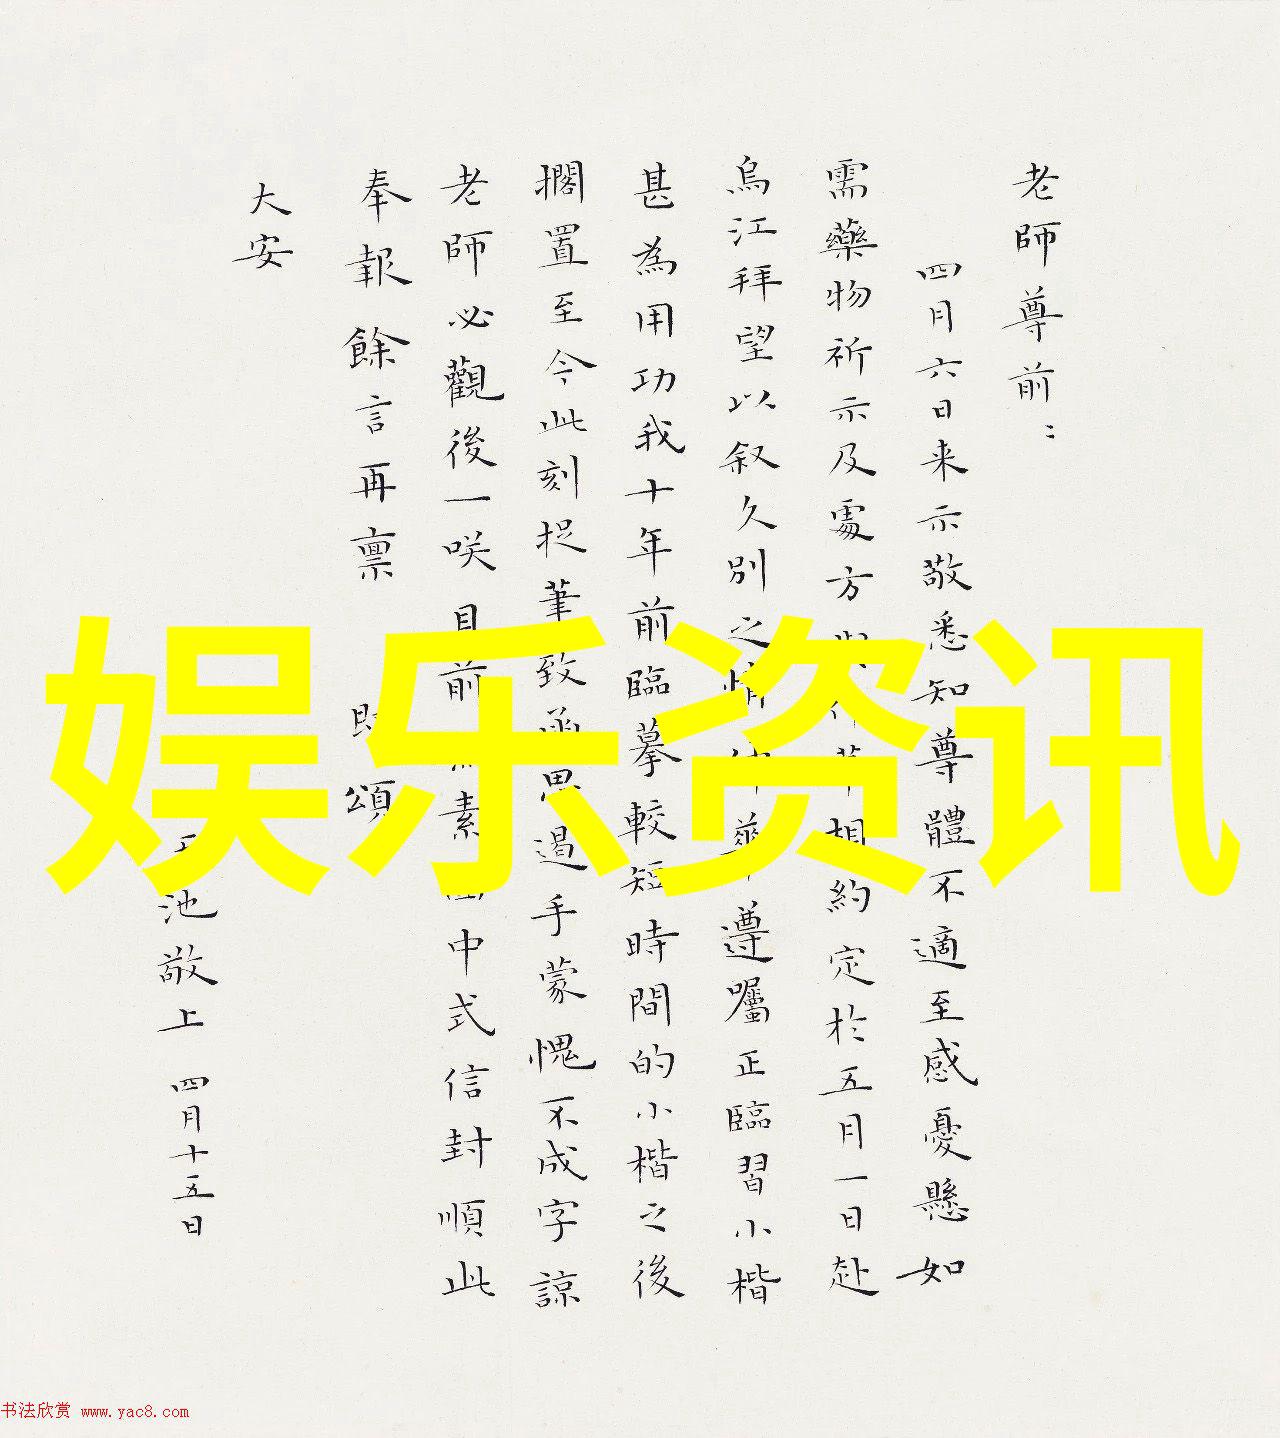 老師尊前：
四月六日来示敬悉知尊體不適至感憂懸如
需藥物祈示及處方 相約定於五月一日赴
烏江拜望以叙久別之情 遵囑正臨習小楷
甚為用功我十年前臨摹較短時間的小楷之後
擱置至今此刻捉筆致函思遏手蒙愧不成字諒
老師必觀後一咲目前 素 中式信封順此
奉報餘言再稟 頌
大安
池敬上 四月十五日
娱乐资讯
书法欣赏 www.yac8.com